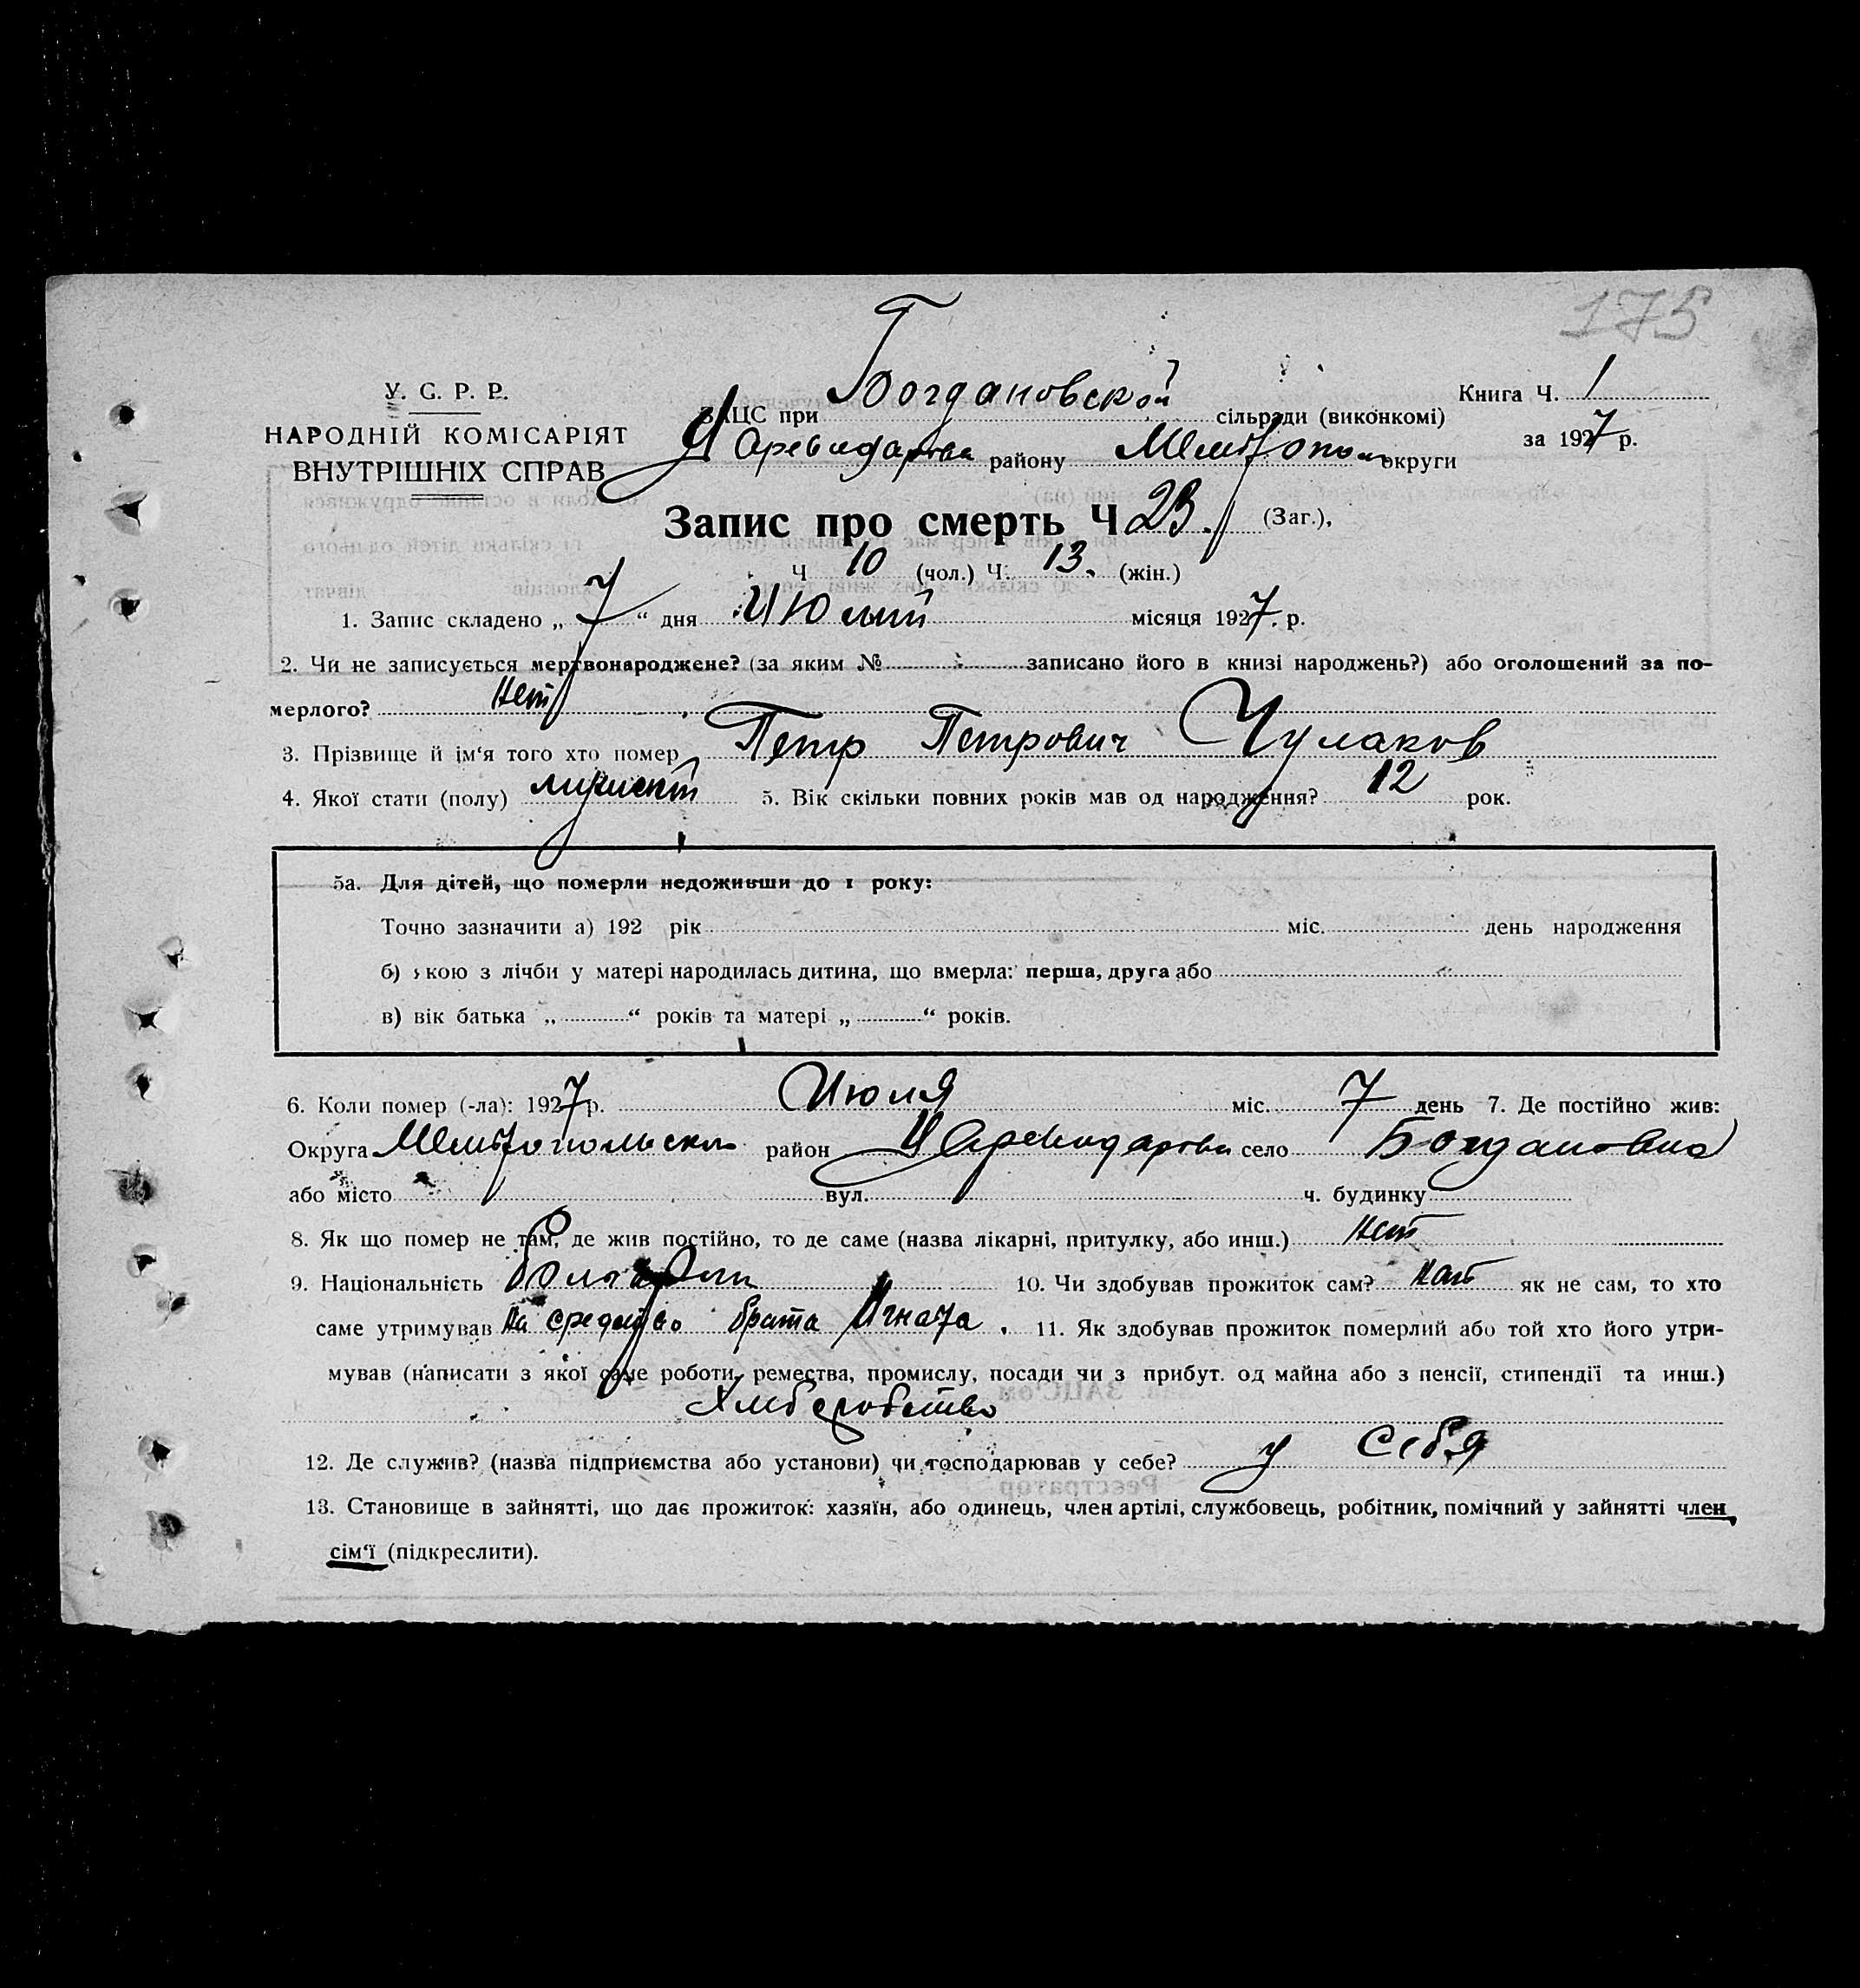 175
У. С. Р. Р.
НАРОДНІЙ КОМІСАРІЯТ
ВНУТРІШНІХ СПРАВ
ЗАЦС при Богдановской сільради (виконкомі)
района району Мелітопол округи
Книга Ч. 1
за 1927 р.
Запис про смерть Ч 23. (Заг.),
Ч 10 (чол.) Ч. 13. (жін.)
1. Запис складено „ 7 “ дня Июля місяця 1927. р.
2. Чи не записується мертвонароджене? (за яким № записано його в книзі народжень?) або оголошений за по-
мерлого? нет
3. Прізвище й ім‘я того хто помер Петр Петрович Чулаков
4. Якої стати (полу) 5. Вік скільки повних років мав од народження? 12 рок.
5а. Для дітей, що померли недоживши до 1 року:
Точно зазначити а) 192 рік міс. день народження
б) якою з лічби у матері народилась дитина, що вмерла: перша, друга або
в) вік батька „ “ років та матері „ “ років.
6. Коли помер (-ла): 1927 р. Июля міс. 7 день 7. Де постійно жив:
Округа Мелітопольска район село Богдановка
або місто вул. ч. будинку
8. Як що помер не там, де жив постійно, то де саме (назва лікарні, притулку, або инш.) нет
9. Національність 10. Чи здобував прожиток сам? нет як не сам, то хто
саме утримував на средство брата Игната. 11. Як здобував прожиток померлий або той хто його утри-
мував (написати з якої саме роботи, ремества, промислу, посади чи з прибут. од майна або з пенсії, стипендії та инш.)
Хлеборобство
12. Де служив? (назва підприємства або установи) чи господарював у себе? у себя
13. Становище в зайнятті, що дає прожиток: хазяїн, або одинець, член артілі, службовець, робітник, помічний у зайнятті член
сім‘ї (підкреслити).